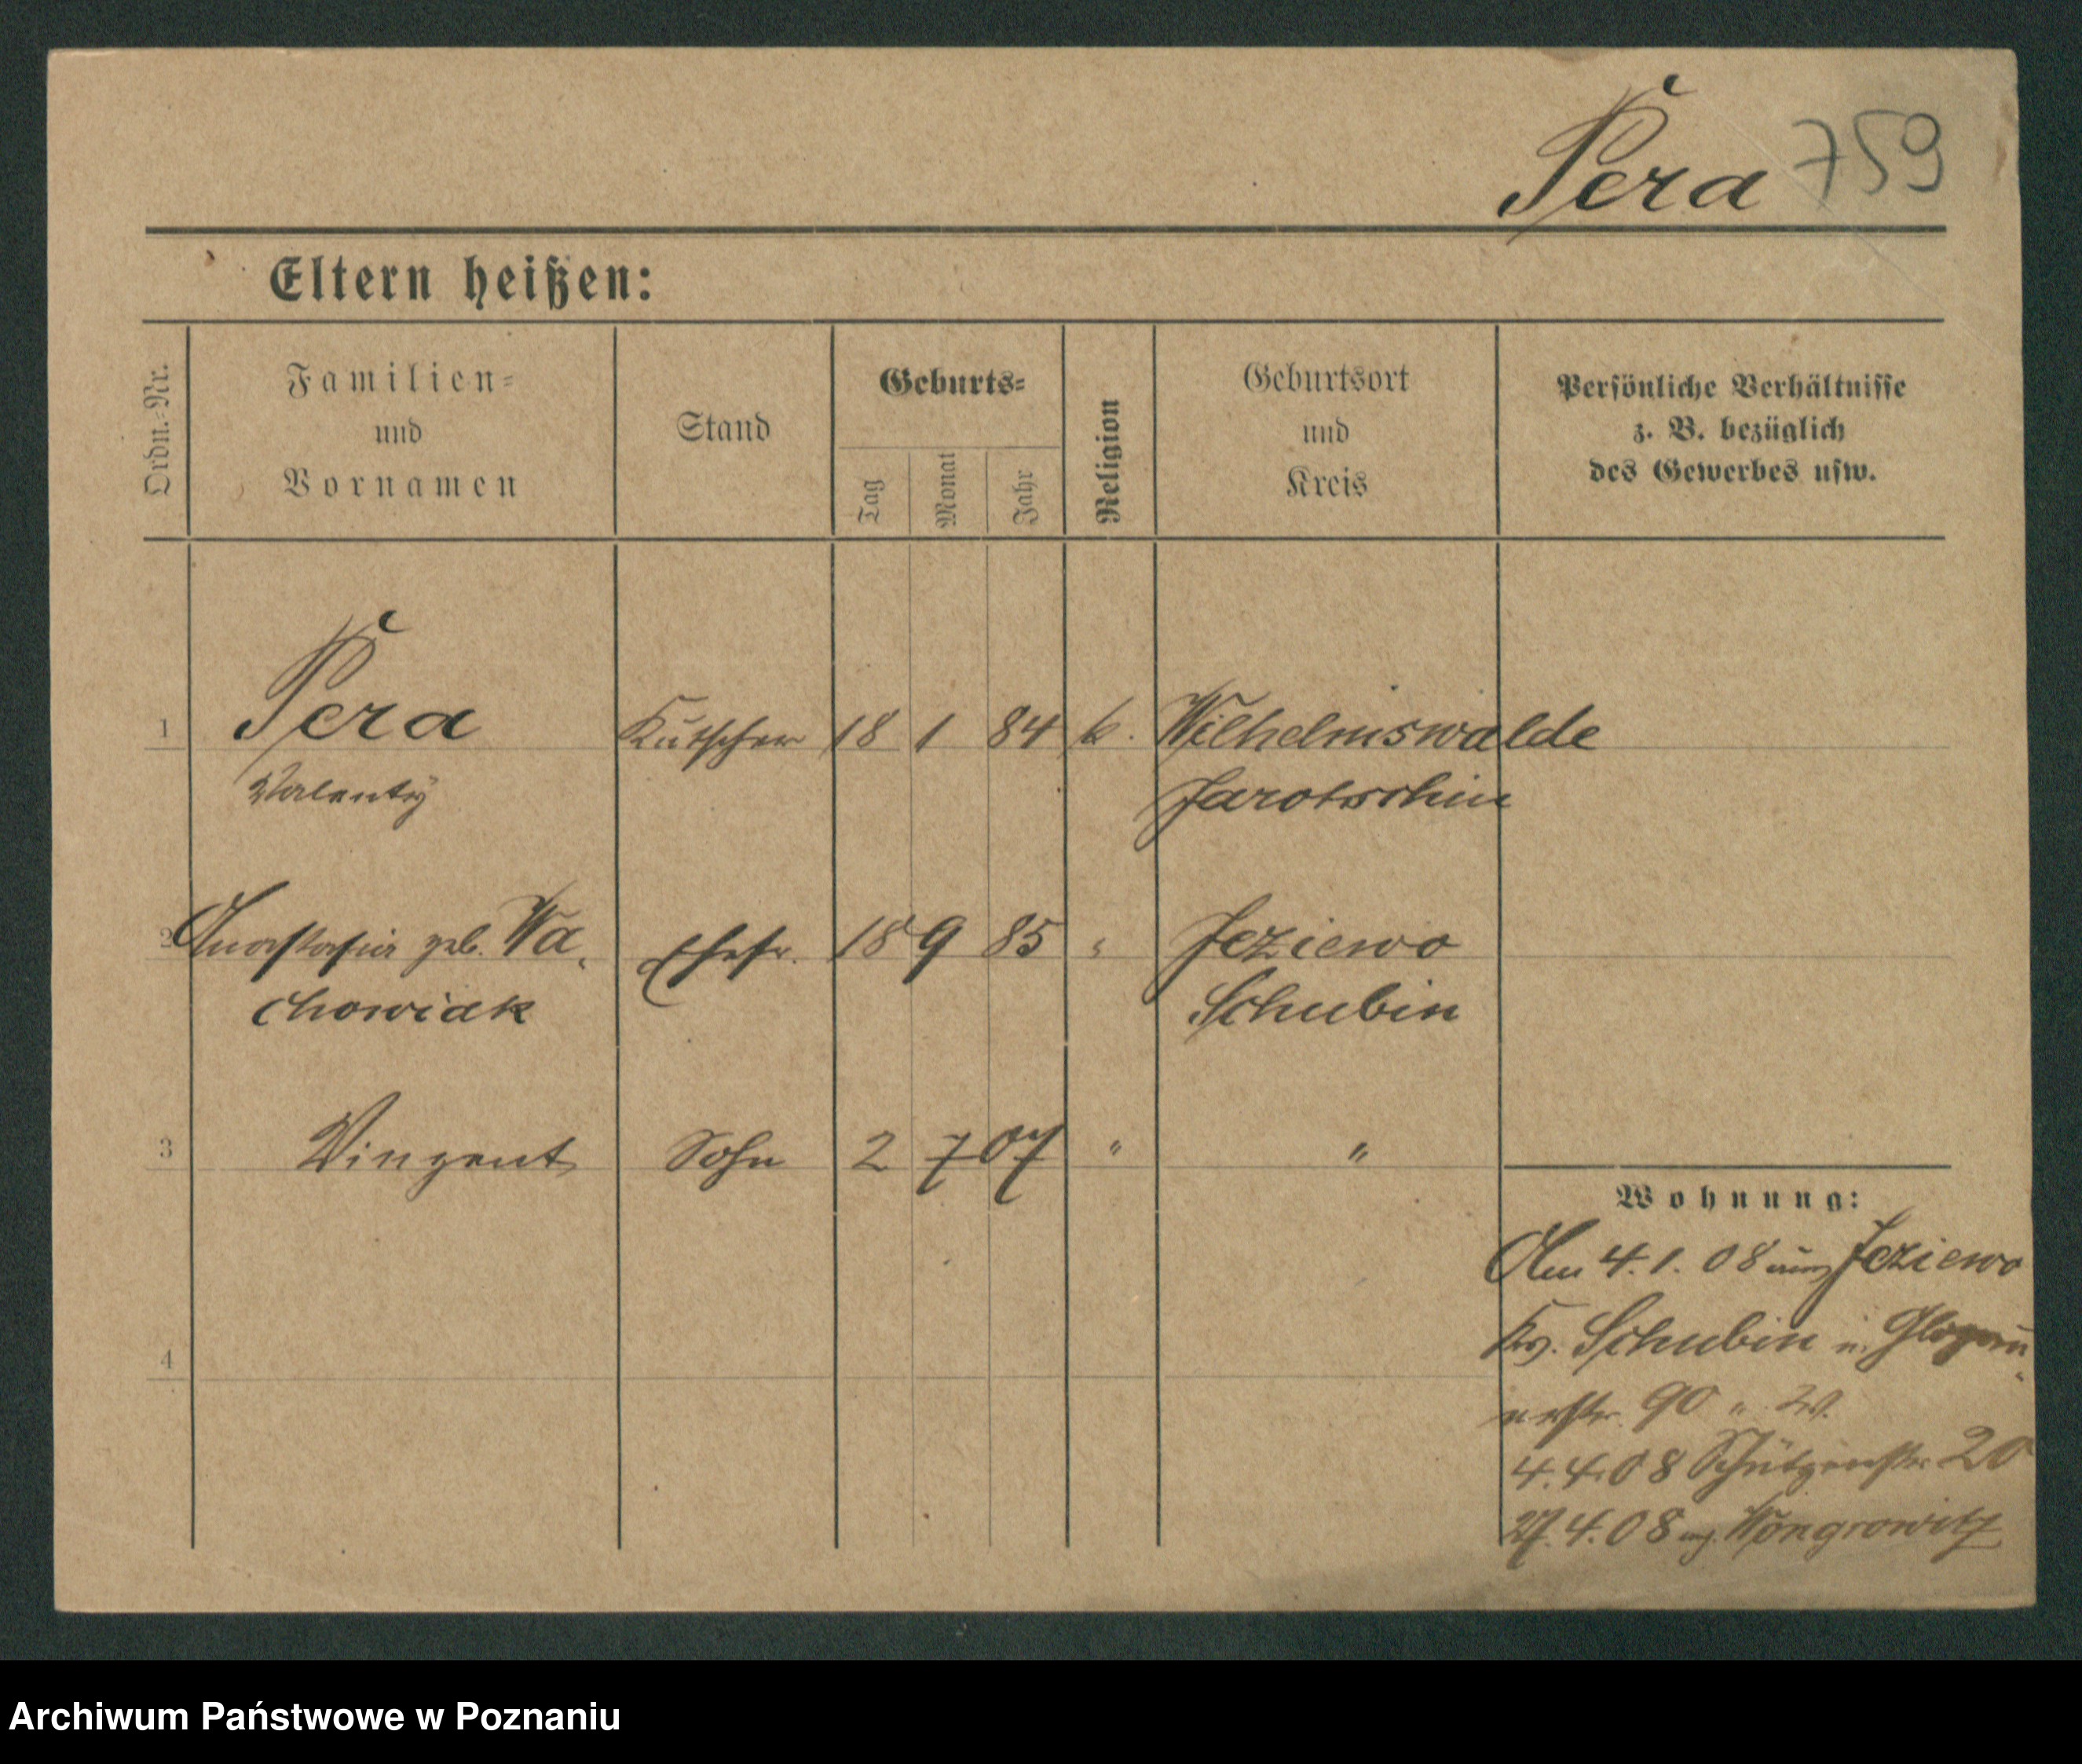 Pera 759
Eltern heißen:
Ordn.-Nr.
Familien-
und
Vornamen
Stand
Geburts-
Tag
Monat
Jahr
Religion
Geburtsort
und
Kreis
Persönliche Verhältnisse
z. B. bezüglich
des Gewerbes usw.
1 Pera Kutscher 18 1 84 k. Wilhelmswalde
Valenty Jarotschin
2 Anastasia geb. Wa- Ehefr. 18 9 85 " Jeziewo
chowiak Schubin
3 Vinzent Sohn 2 7 07 " "
Wohnung:
Am 4.1.08 aus Jeziewo
Krs. Schubin n. Glogau-
erstr. 90 
4.4.08 Schützenstr 20
27.4.08 Wongrowitz
4
Archiwum Państwowe w Poznaniu